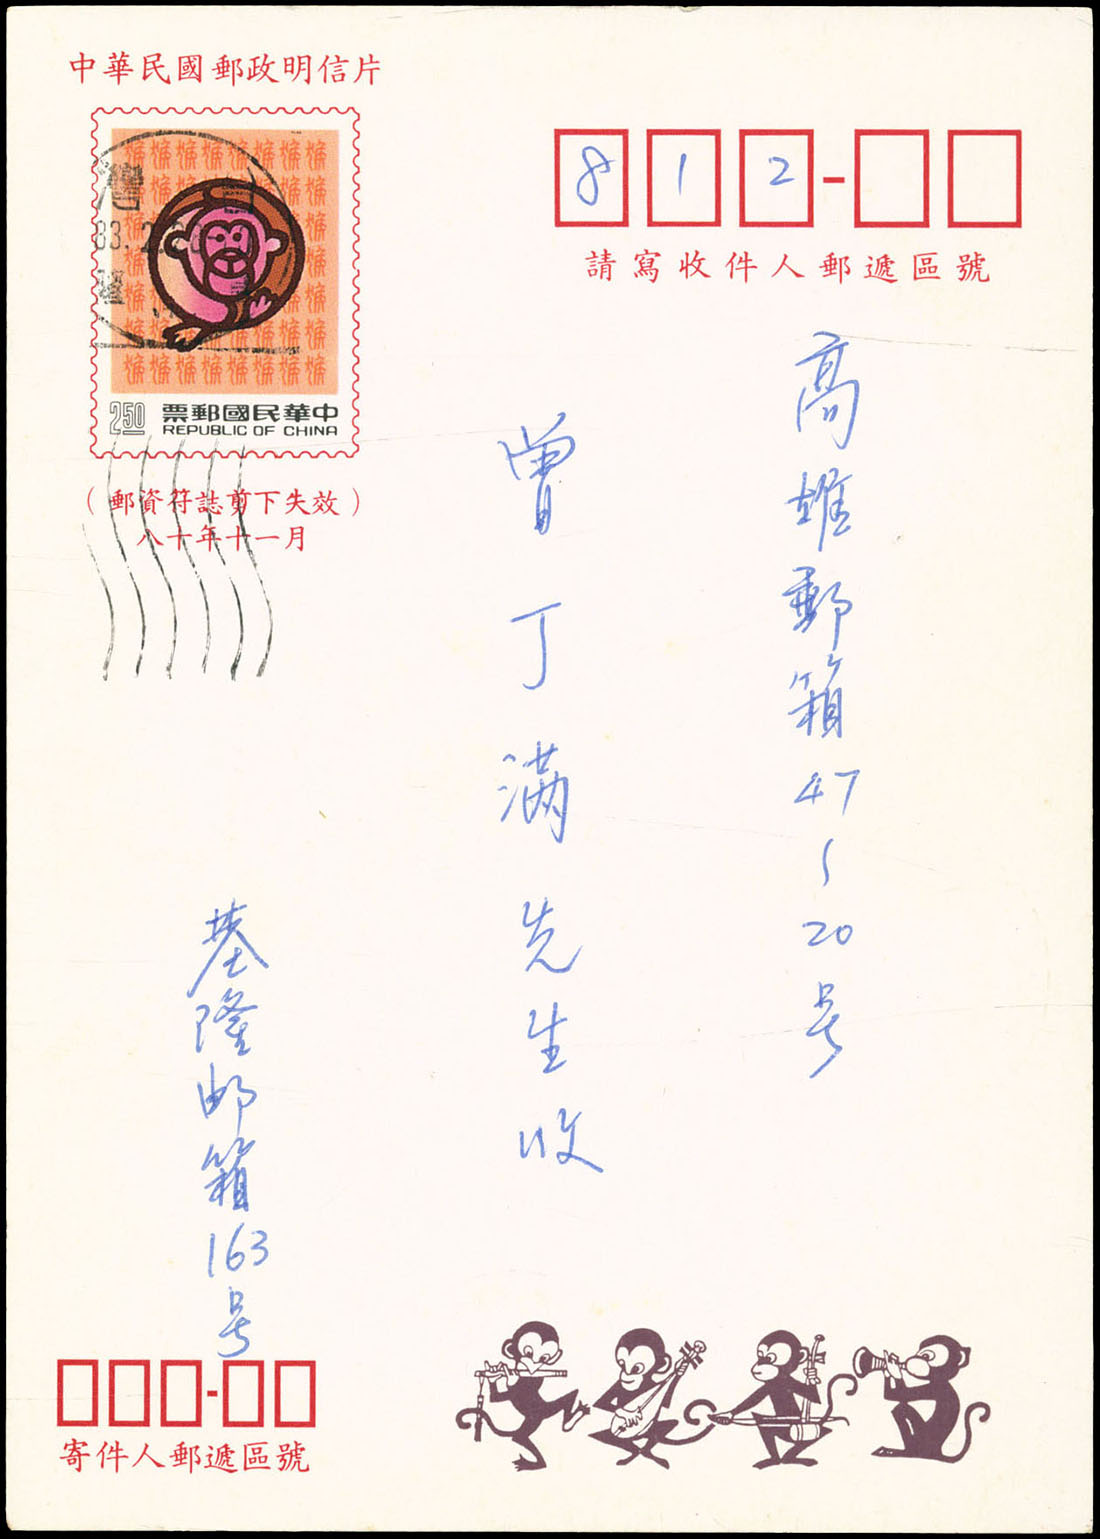 中華民國郵政明信片
812-
請寫收件人郵遞區號
2.50
票郵國民華中
REPUBLIC OF CHINA
（郵資符誌剪下失效）
八十年十一月
高雄郵箱47~20号
曾丁滿先生收
基隆邮箱163号
寄件人郵遞區號